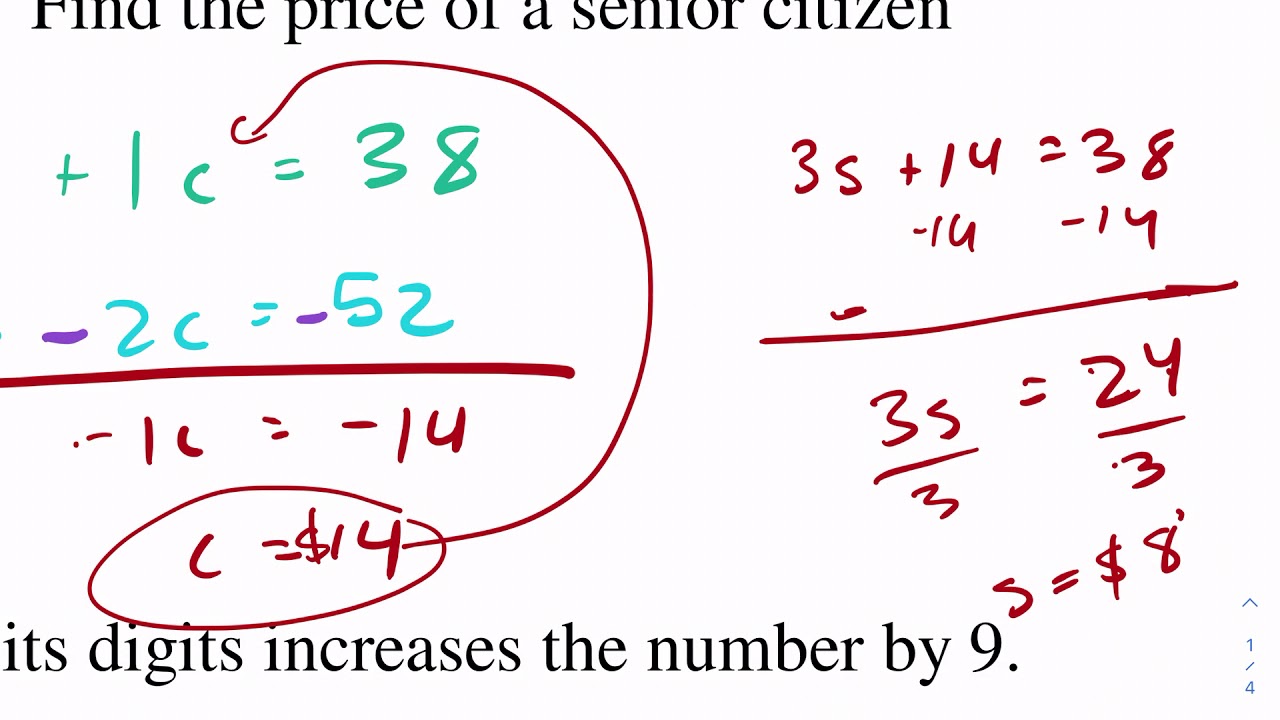 Find the price of a senior citizen
+1c = 38
-2c = -52
-1c = -14
c = $14
3s + 14 = 38
-14 -14
3s = 24
3 3
s = $8
its digits increases the number by 9.
1
/
4